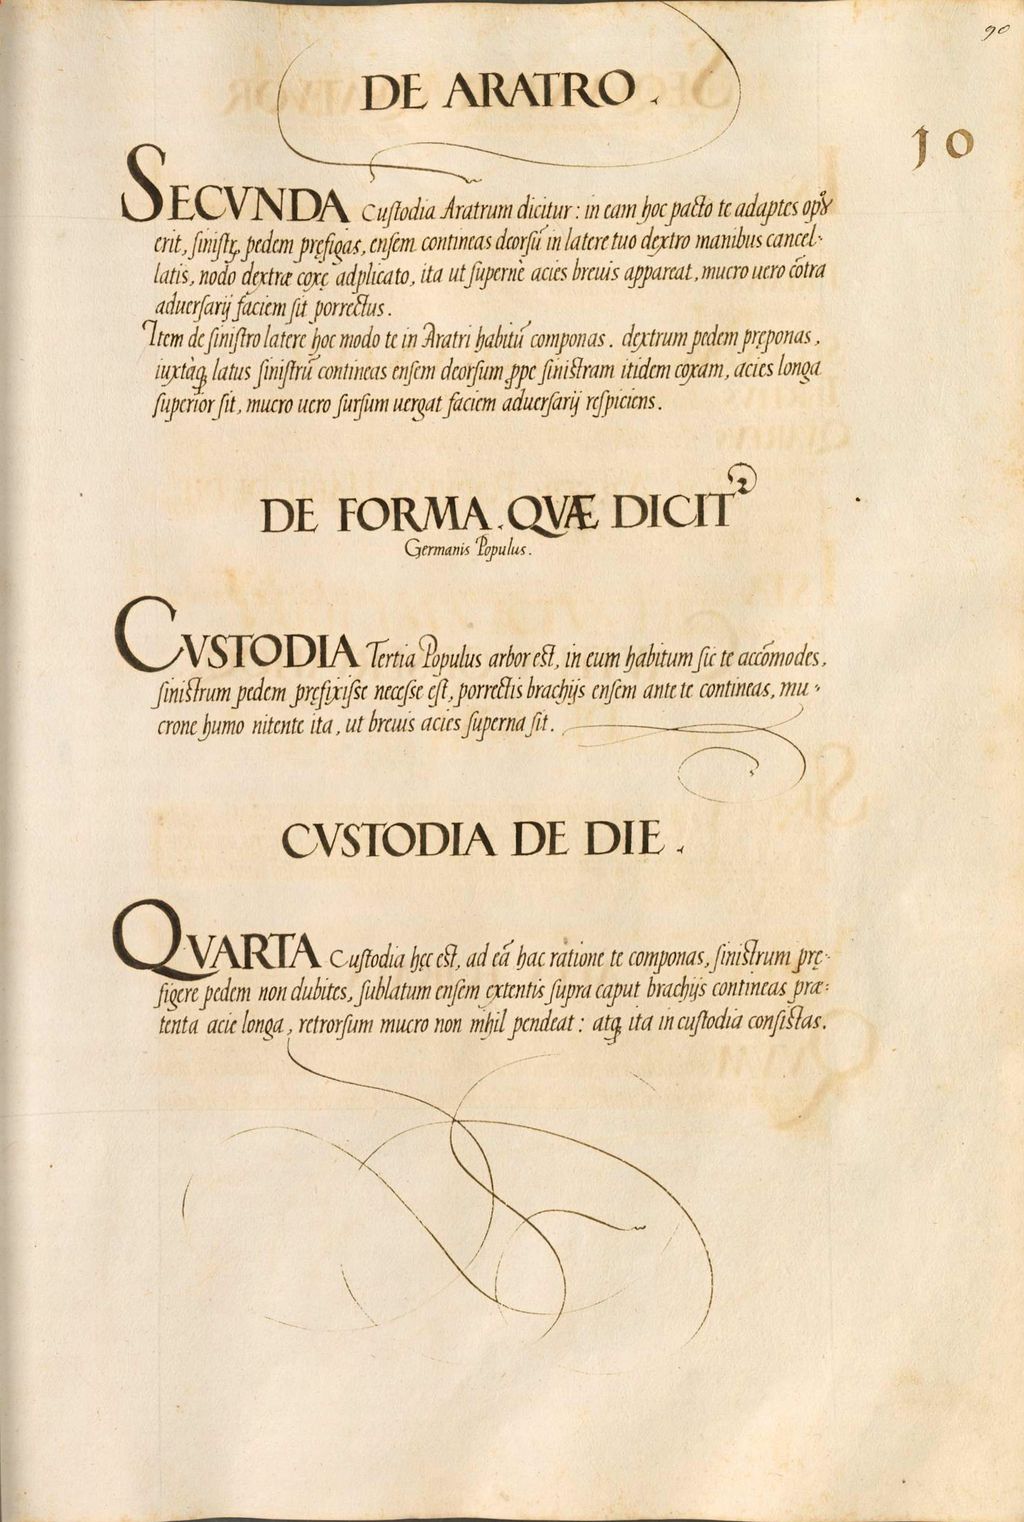 90
DE ARATRO.
10
SECVNDA Custodia Aratrum dicitur: in eam hoc pacto te adaptes opꝰ
erit, sinistꝝ pedem pręfigas, ensem contineas deorsũ in latere tuo dextro manibus cancel-
latis, nodo dextræ coxę adplicato, ita ut supernè acies breuis appareat, mucro uero cõtra
aduersarij faciem sit porrectus.
Item de sinistro latere hoc modo te in Aratri habitũ componas. dextrum pedem pręponas,
iuxtàqꝫ latus sinistrũ contineas ensem deorsum ꝓpe sinistram itidem coxam, acies longa
superior sit, mucro uero sursum uergat faciem aduersarij respiciens.
DE FORMA, QVÆ DICITᷣ
Germanis Populus.
CVSTODIA Tertia Populus arbor est, in eum habitum sic te accõmodes,
sinistrum pedem pręfixisse necesse est, porrectis brachijs ensem ante te contineas, mu-
crone humo nitente ita, ut breuis acies superna sit.
CVSTODIA DE DIE.
QVARTA Custodia hęc est, ad eã hac ratione te componas, sinistrum prę-
figere pedem non dubites, sublatum ensem extentis supra caput brachijs contineas præ-
tenta acie longa, retrorsum mucro non nihil pendeat: atqꝫ ita in custodia consistas.